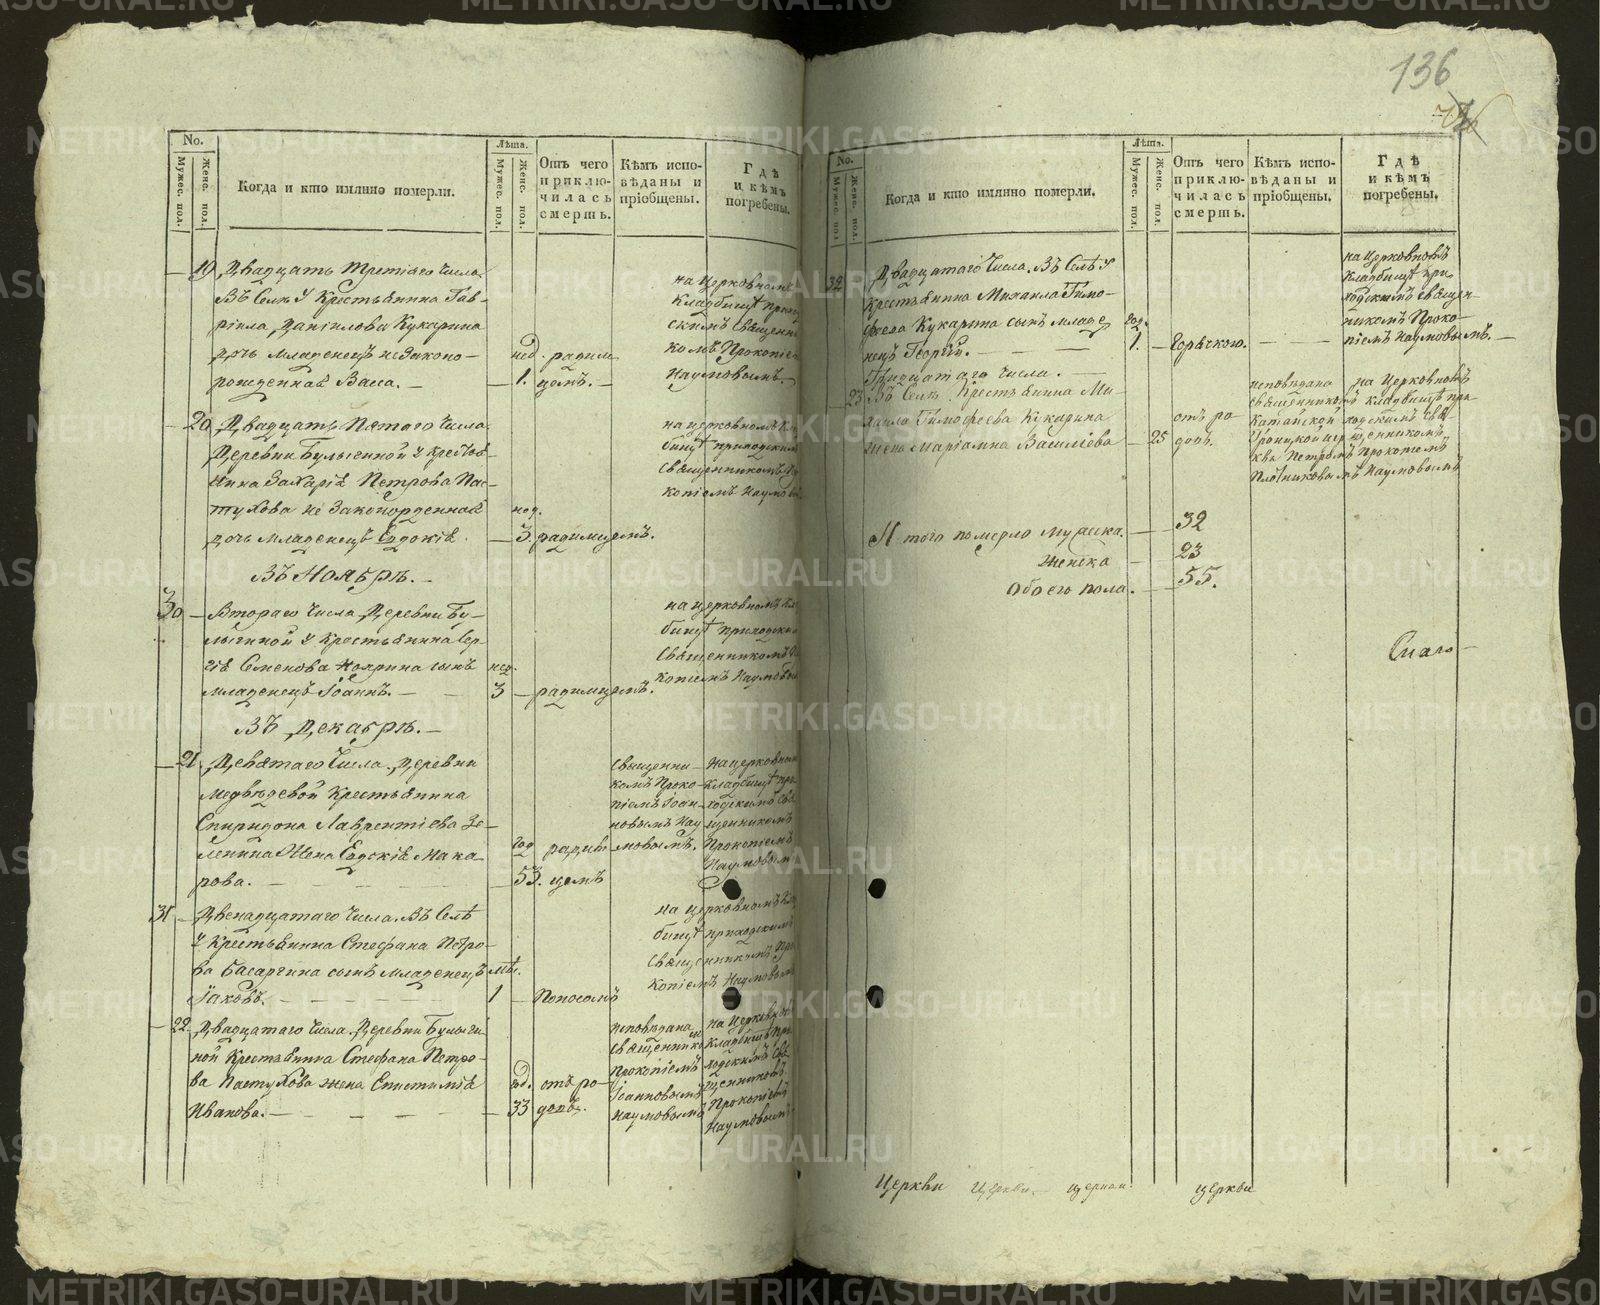 136
No.
Мужес. пол.
Женс. пол.
Когда и кто имянно померли.
Лѣта.
Мужес. пол.
Женс. пол.
Отъ чего
приклю-
чилась
смерть.
Кѣмъ испо-
вѣданы и
прiобщены.
Гдѣ
и кѣмъ
погребены.
19
Двадцать третiаго числа.
Въ Селѣ у Крестьянина Гав-
рiила Данiилова Кукарина
дочь младенецъ незаконо-
рожденная Васса.
нед.
1.
радим-
цомъ.
на церковномъ
кладбищѣ приход
скимъ священни
комъ Прокопiем
Наумовымъ.
20
Двадцать Пятого числа
Деревни Булыгиной у Крестья
нина Захарiя Петрова Пас-
тухова не законорожденная
дочь младенецъ Евдокiя.
нед.
3.
радимцемъ.
на церковномъ кла
бищѣ приходским
священникомъ Про
копiемъ Наумовы
Въ Ноябрѣ.
30
Втораго числа Деревни Бу-
лыгиной у Крестьянина Сер-
гiя Семенова сынъ
младенецъ Iоаннъ.
нед.
3
радимцемъ.
на церковномъ кла
бищѣ приходски
священникомъ Про
копiемъ Наумовы
Въ Декабрѣ.
21.
Девятаго числа. Деревни
Медвѣдевой Крестьянина
Спиридона Лаврентiева Зе-
ленина Жена Евдокiя Мака-
рова.
год
53.
радим-
цемъ
Священни-
комъ Проко-
пiемъ Iоан-
новымъ Нау-
мовымъ.
На церковном
кладбищѣ при
ходскимъ свя
щенникомъ
Прокопiемъ
Наумовым
31
Двенадцатаго числа. Въ Селѣ
у Крестьянина Стефана Петро-
ва Басаргина сынъ младенецъ
Iаковъ.
мѣс.
1
Поносомъ
на церковномъ клад
бищѣ приходскимъ
священникомъ Про
копiемъ Наумовым
22
Двадцатаго числа. Деревни Булыги-
ной Крестьянина Стефана Петро-
ва Пастухова жена Епистимiя
Иванова.
год.
33
отъ ро-
довъ.
исповѣдана
священникомъ
Прокопiемъ
Iоанновымъ
Наумовымъ
на церковномъ
кладбищѣ при
ходскимъ свя
щенникомъ
Прокопiемъ
Наумовымъ
No.
Мужес. пол
Женс. пол.
Когда и кто имянно померли.
Лѣта.
Мужес. пол.
Женс. пол.
Отъ чего
приклю-
чилась
смерть.
Кѣмъ испо-
вѣданы и
прiобщены.
Гдѣ
и кѣмъ
погребены.
32
Двадцатаго Числа. Въ Селѣ у
Крестьянина Михаила Тимо-
феева Кукарина сынъ младе
нецъ Георгiй.
год.
1.
Горячкою.
на церковномъ
кладбищѣ при-
ходскимъ священ-
никомъ Проко-
пiемъ Наумовымъ.
Тридцатаго числа.
23
Въ Селѣ Крестьянина Ми-
хаила Тимофеева Кукарина
жена Марiамна Василiева
25
отъ ро-
довъ.
исповѣдана
священникомъ
Катайской
Троицкой цер
кви Петромъ
Плотниковымъ
на церковномъ
кладбищѣ при
ходскимъ свя
щенникомъ
Прокопiемъ
Наумовымъ
Итого померло мужска.
32
женска
23
Обоего пола.
55.
Церкви Церкви церкви церкви
METRIKI.GASO-URAL.RU